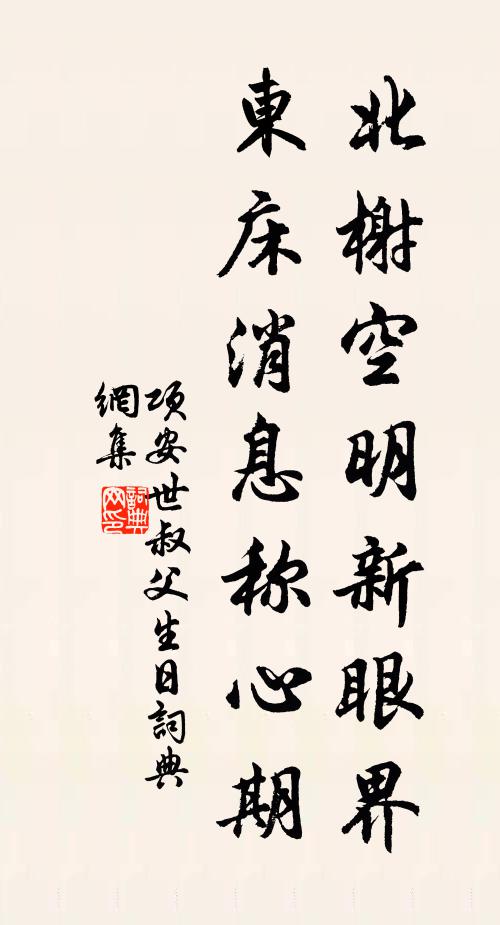 北榭空明新眼界
東床消息称心期
項安世叔父生日詞典
網集
詞典
网印